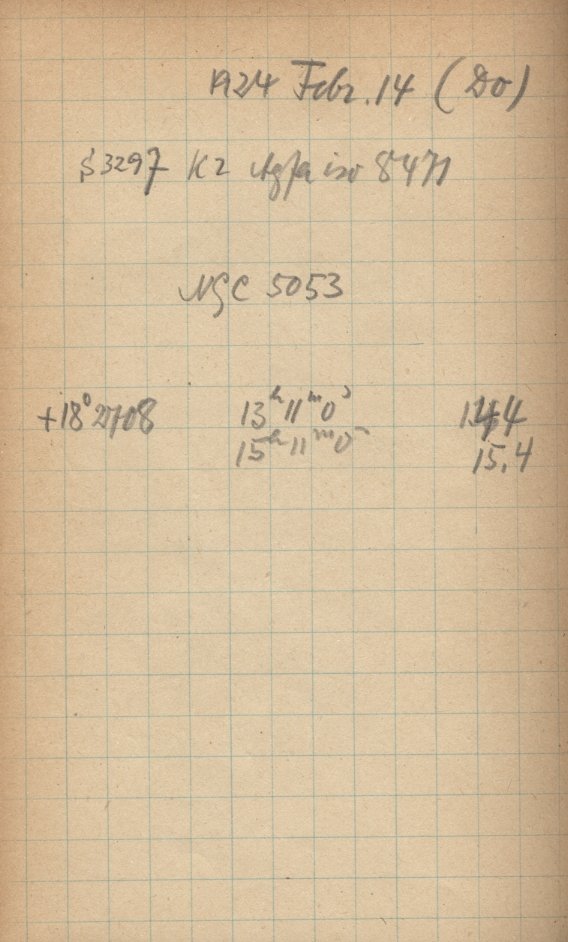 1924 Febr. 14 (Do)
S3297 K2 Agfa iso 8471
NGC 5053
+18° 2708 13ʰ 11ᵐ 0ˢ 14,4
15ʰ 11ᵐ 0ˢ 15,4